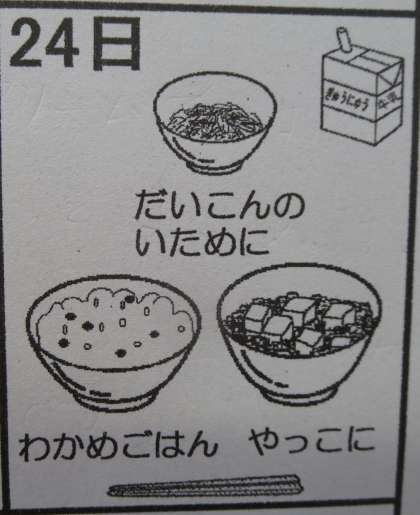 24日
ぎゅうにゅう
だいこんの
いために
わかめごはん
やっこに